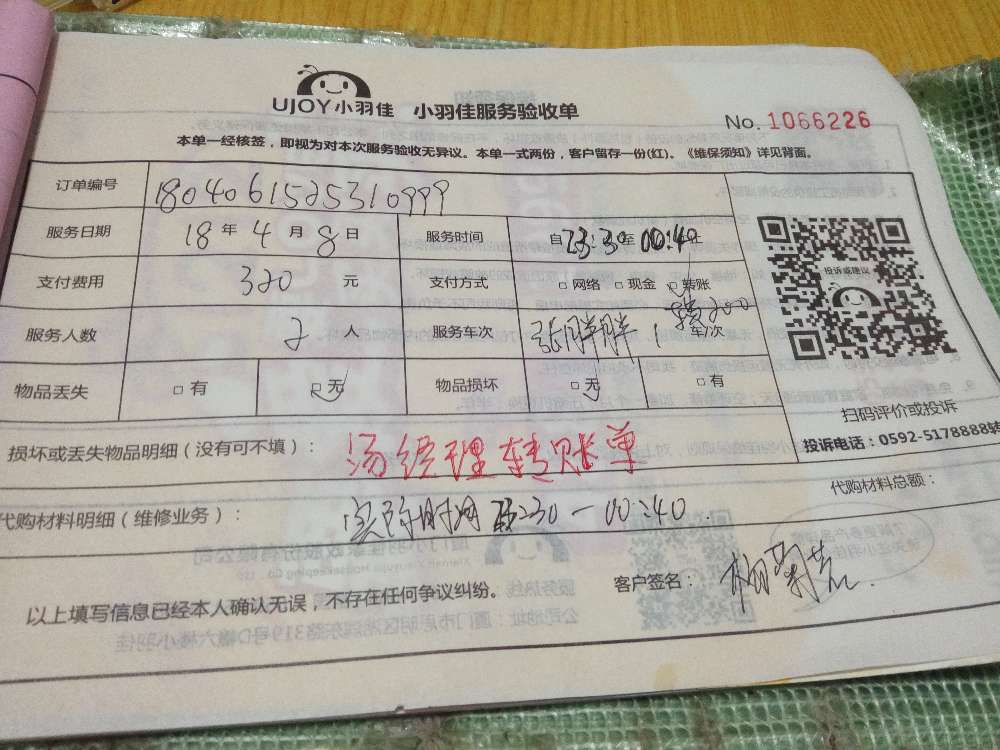 UJOY小羽佳 小羽佳服务验收单
No. 1066226
本单一经核签，即视为对本次服务验收无异议。本单一式两份，客户留存一份(红)。《维保须知》详见背面。
订单编号 1804061525310999
服务日期 18年4月8日 服务时间 自23:30至00:40
支付费用 320 元 支付方式 □网络 □现金 □转账
转200
服务人数 2 人 服务车次 张胖胖 1 车/次
物品丢失 □有 □无 物品损坏 □无 □有
投诉或建议
扫码评价或投诉
投诉电话：0592-5178888转
损坏或丢失物品明细（没有可不填）：汤经理转账单
代购材料总额：
代购材料明细（维修业务）：实际时间 230-00:40
客户签名：
以上填写信息已经本人确认无误，不存在任何争议纠纷。